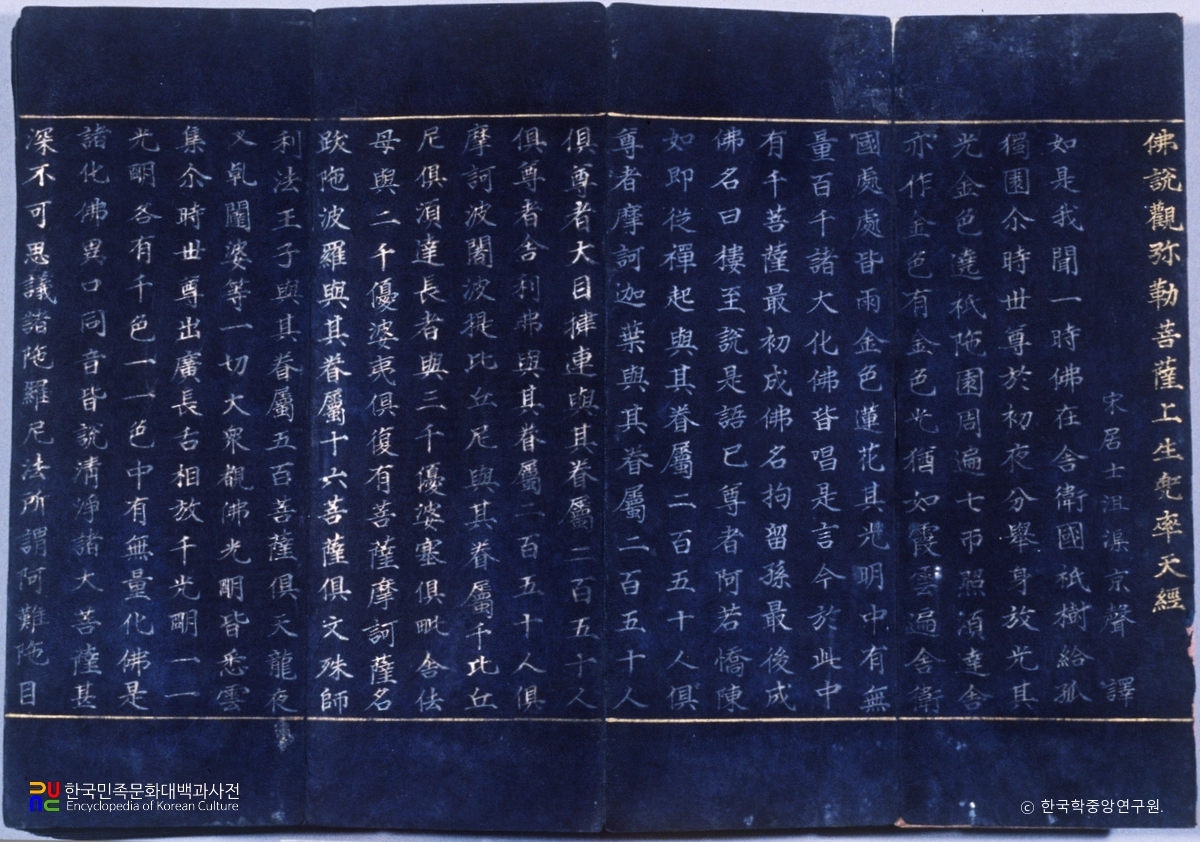 佛說觀弥勒菩薩上生兜率天經
宋居士沮渠京聲 譯
如是我聞一時佛在舍衛國祇樹給孤
獨園尒時世尊於初夜分舉身放光其
光金色遶祇陁園周遍七帀照湏達舍
亦作金色有金色光猶如霞雲遍舍衛
國處處皆雨金色蓮花其光明中有無
量百千諸大化佛皆唱是言今於此中
有千菩薩最初成佛名拘留孫最後成
佛名曰樓至說是語已尊者阿若憍陳
如即從禪起與其眷屬二百五十人俱
尊者摩訶迦葉與其眷屬二百五十人
俱尊者大目揵連與其眷屬二百五十人
俱尊者舍利弗與其眷屬二百五十人俱
摩訶波闍波提比丘尼與其眷屬千比丘
尼俱湏達長者與三千優婆塞俱毗舍佉
母與二千優婆夷俱復有菩薩摩訶薩名
䟦陁波羅與其眷屬十六菩薩俱文殊師
利法王子與其眷屬五百菩薩俱天龍夜
叉乹闥婆等一切大衆觀佛光明皆悉雲
集尒時世尊出廣長舌相放千光明一一
光明各有千色一一色中有無量化佛是
諸化佛異口同音皆說清淨諸大菩薩甚
深不可思議諸陁羅尼法所謂阿難陁目
한국민족문화대백과사전
Encyclopedia of Korean Culture
ⓒ 한국학중앙연구원.